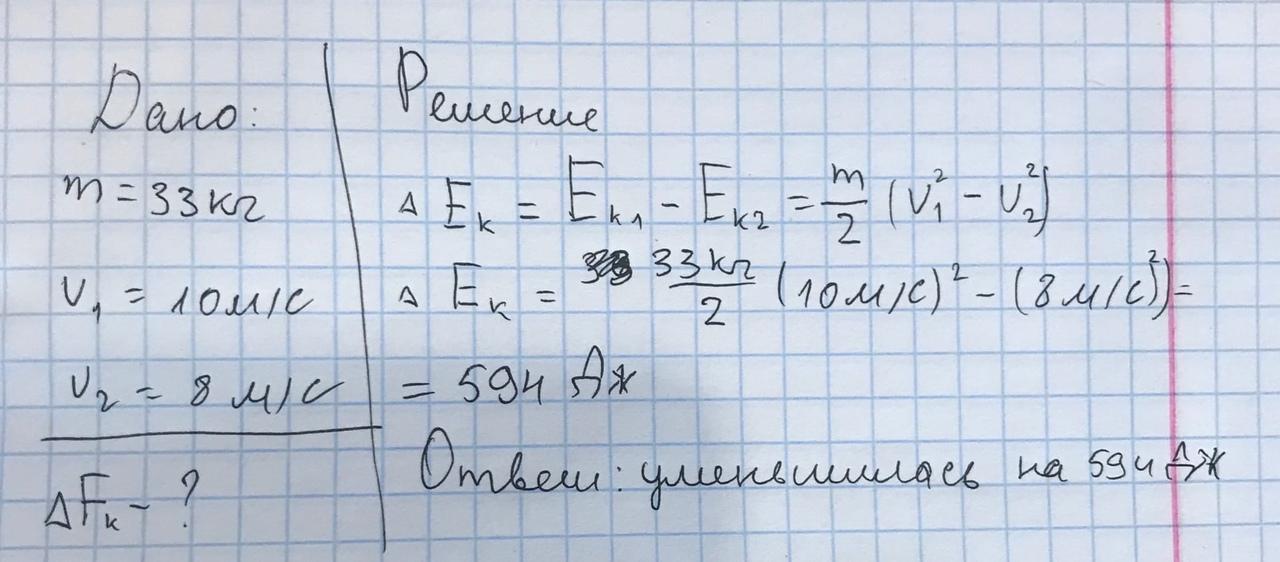 Дано:
m = 33 кг
v₁ = 10 м/с
v₂ = 8 м/с
ΔEₖ - ?
Решение
ΔEₖ = Eₖ₁ - Eₖ₂ = m/2 (v₁² - v₂²)
ΔEₖ = 33 кг/2 (10 м/с)² - (8 м/с)²) =
= 594 Дж
Ответ: уменьшилась на 594 Дж